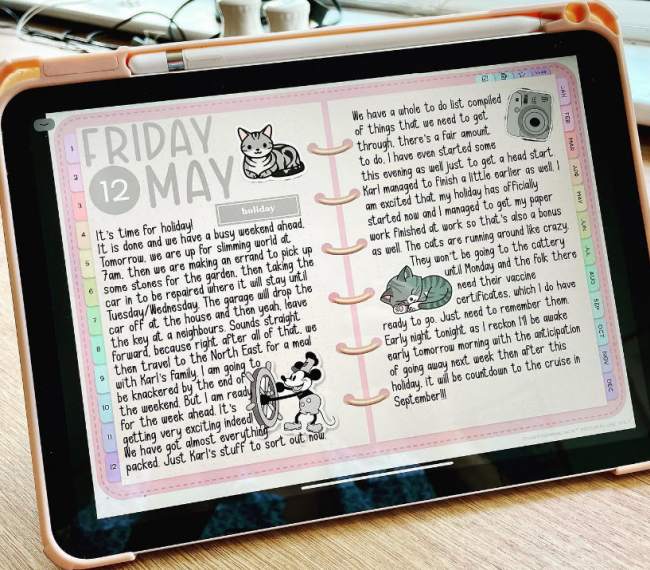 FRIDAY
12 MAY
holiday
It's time for holiday!
It is done and we have a busy weekend ahead.
Tomorrow, we are up for slimming world at
7am, then we are making an errand to pick up
some stones for the garden, then taking the
car in to be repaired where it will stay until
Tuesday/Wednesday. The garage will drop the
car off at the house and then yeah, leave
the key at a neighbours. Sounds straight
forward, because right after all of that, we
then travel to the North East for a meal
with Karl's family. I am going to
be knackered by the end of
the weekend. But I am ready
for the week ahead. It's
getting very exciting indeed
We have got almost everything
packed. Just Karl's stuff to sort out now.
We have a whole to do list compiled
of things that we need to get
through, there's a fair amount
to do. I have even started some
this evening as well just to get a head start.
Karl managed to finish a little earlier as well. I
am excited that my holiday has officially
started now and I managed to get my paper
work finished at work so that's also a bonus
as well. The cats are running around like crazy.
They won't be going to the cattery
until Monday and the folk there
need their vaccine
certificates, which I do have
ready to go. Just need to remember them.
Early night tonight, as I reckon I'll be awake
early tomorrow morning with the anticipation
of going away next week then after this
holiday, it will be countdown to the cruise in
September!!!
1
2
3
4
5
6
7
8
9
10
11
12
JAN
FEB
MAR
APR
MAY
JUN
JUL
AUG
SEP
OCT
NOV
DEC